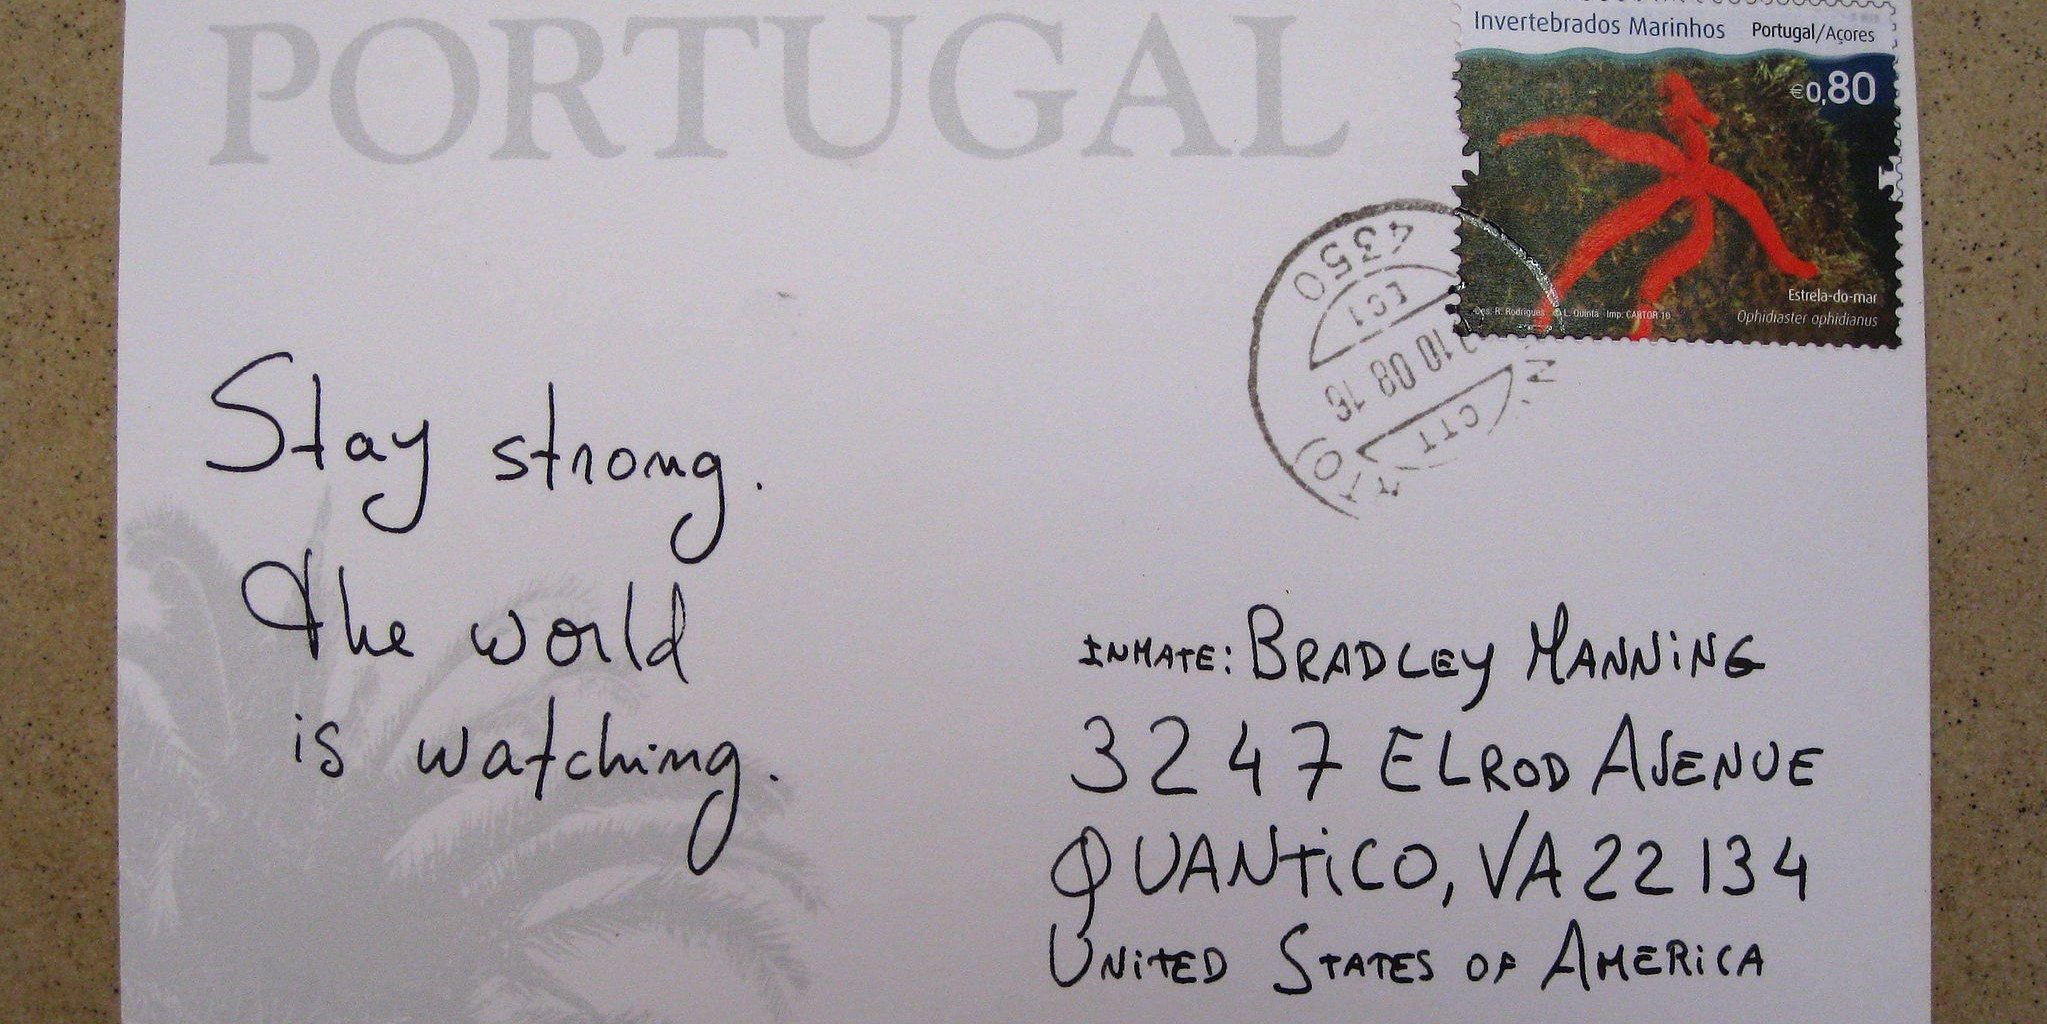 PORTUGAL
Invertebrados Marinhos Portugal/Açores
€0,80
Estrela-do-mar
Ophidiaster ophidianus
Des: R. Rodrigues © L. Quinta Imp: CARTOR 10
4350
CTT
Stay strong.
The world
is watching.
INMATE: BRADLEY MANNING
3247 ELROD AVENUE
QUANTICO, VA 22134
UNITED STATES OF AMERICA